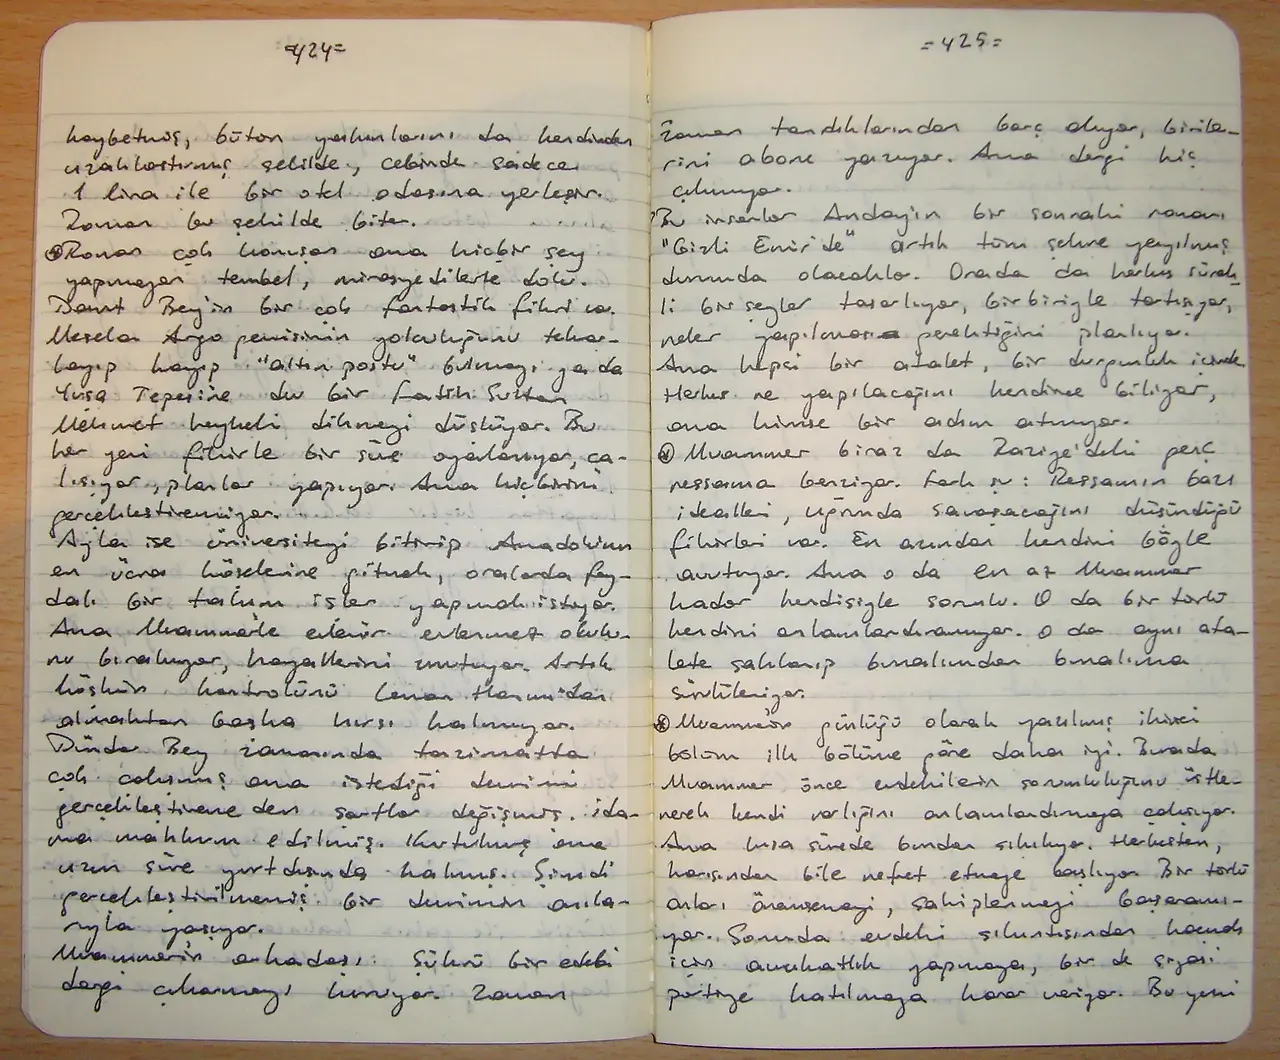 =424=
kaybetmiş, bütün yakınlarını da kendinden
uzaklaştırmış şekilde, cebinde sadece
1 lira ile bir otel odasına yerleşir.
Roman bu şekilde biter.
Roman çok konuşan ama hiçbir şey
yapmayan tembel, mirasyedilerle dolu.
Davut Bey'in bir çok fantastik fikri var.
Mesela Argo gemisinin yolculuğunu tekrar-
layıp kayıp "altın postu" bulmayı ya da
Yuşa Tepesine dev bir Fatih Sultan
Mehmet heykeli dikmeyi düşlüyor. Bu
her yeni fikirle bir süre oyalanıyor, ça-
lışıyor, planlar yapıyor. Ama hiçbirini
gerçekleştiremiyor.
Ayla ise üniversiteyi bitirip Anadolunun
en ücra köşelerine gitmek, oralarda fay-
dalı bir takım işler yapmak istiyor.
Ama Muammerle evlenir evlenmez okulu-
nu bırakıyor, hayallerini unutuyor. Artık
köşkün kontrolünü Lenan Hanım'dan
almaktan başka hırsı kalmıyor.
Dündar Bey zamanında tazimatta
çok çalışmış ama istediği devrimi
gerçekleştiremeden şartlar değişmiş. ida-
ma mahkum edilmiş. Kurtulmuş ama
uzun süre yurtdışında kalmış. Şimdi
gerçekleştirilmemiş bir devrimin anıla-
rıyla yaşıyor.
Muammerin arkadaşı Şükrü bir edebi
dergi çıkarmayı kuruyor. Zaman
=425=
zaman tanıdıklarından borç alıyor, birile-
rini abone yazıyor. Ama dergi hiç
çıkmıyor.
Bu insanlar Anday'ın bir sonraki romanı
"Gizli Emir'de" artık tüm şehre yayılmış
durumda olacaklar. Orada da herkes sürek-
li bir şeyler tasarlıyor, birbiriyle tartışıyor,
neler yapılması gerektiğini planlıyor.
Ama hepsi bir atalet, bir durgunluk içinde
Herkes ne yapılacağını kendince biliyor,
ama kimse bir adım atmıyor.
Muammer biraz da Raziye'deki genç
ressama benziyor. Fark şu: Ressamın bazı
idealleri, uğrunda savaşacağını düşündüğü
fikirleri var. En azından kendini böyle
avutuyor. Ama o da en az Muammer
kadar kendisiyle sorunlu. O da bir türlü
kendini anlamlandıramıyor. O da aynı ata-
lete saklanıp bunalımdan bunalıma
sürükleniyor.
Muammerin günlüğü olarak yazılmış ikinci
bölüm ilk bölüme göre daha iyi. Burada
Muammer önce evdekilerin sorumluluğunu üstle-
nerek kendi varlığını anlamlandırmaya çalışıyor.
Ama kısa sürede bundan sıkılıyor. Herkesten,
karısından bile nefret etmeye başlıyor. Bir türlü
onları önemsemeyi, sahiplenmeyi başaramı-
yor. Sonunda evdeki sıkıntısından kaçmak
için avukatlık yapmaya, bir de siyasi
partiye katılmaya karar veriyor. Bu yeni